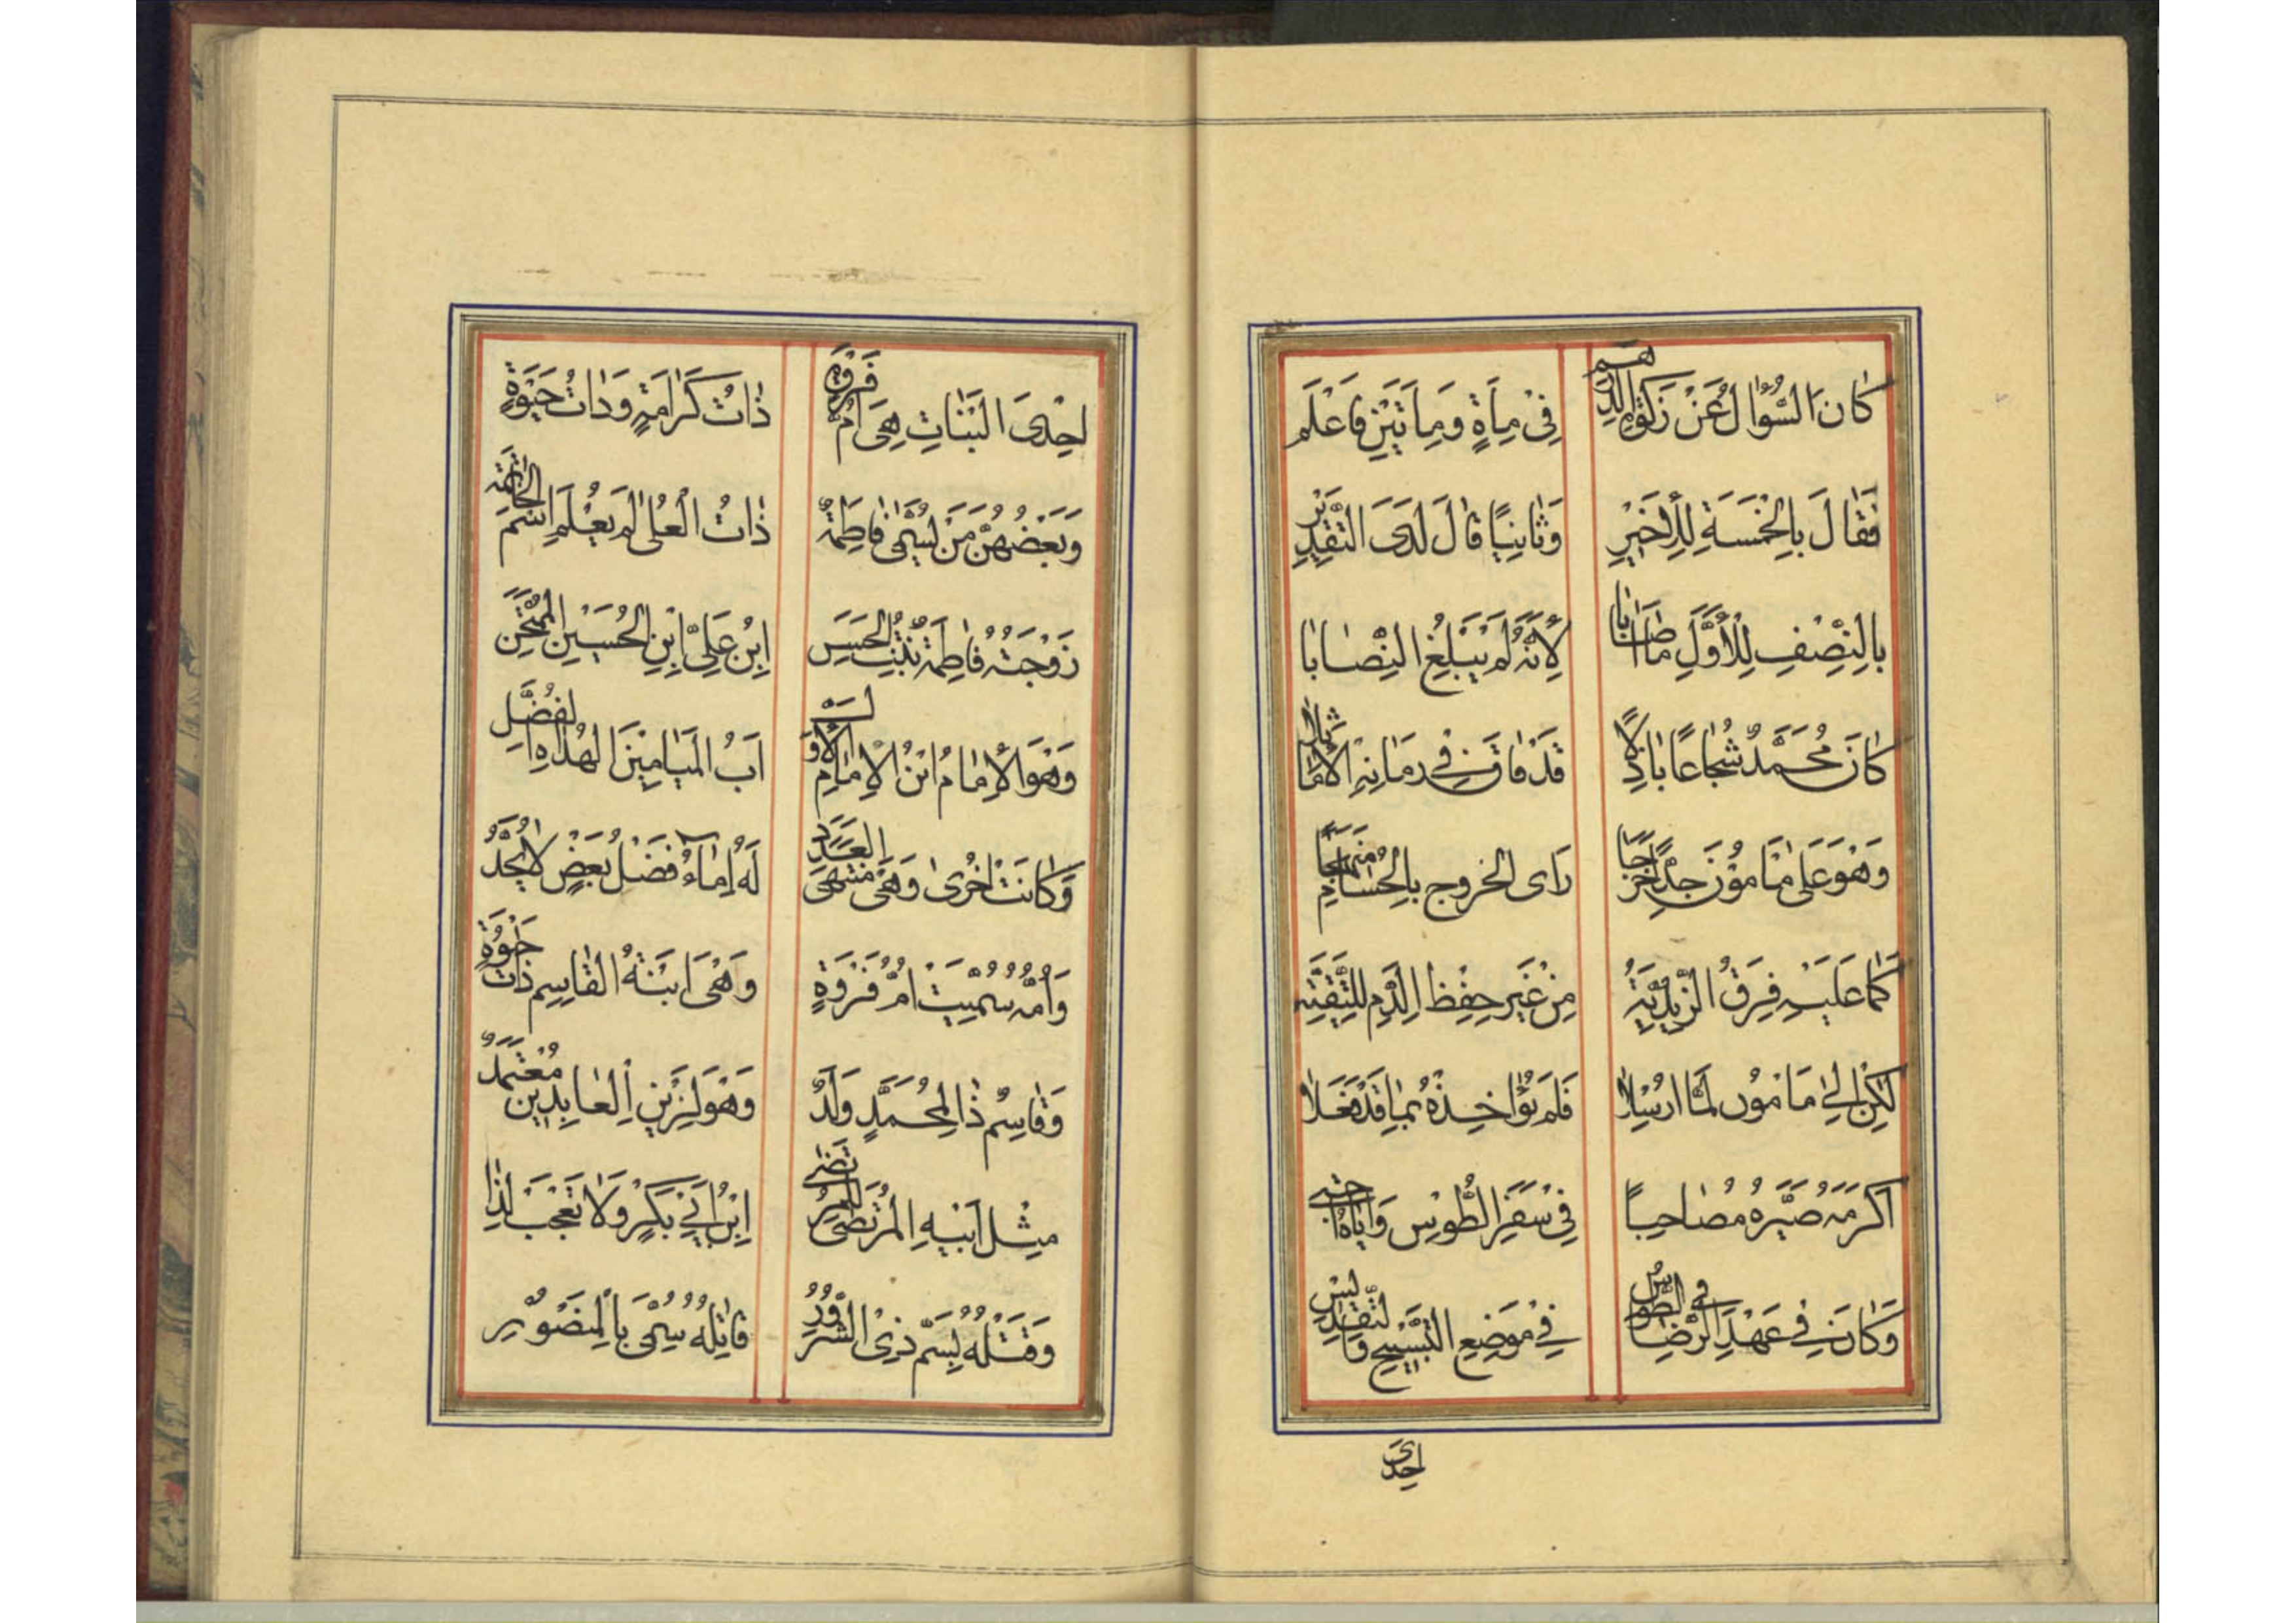 كَانَ السُّؤَالُ عَنْ زَكٰوةِ الدِّرْهَمِ
فِي مِأَةٍ وَمِأَتَيْنِ فَاعْلَمِ
فَقَالَ بِالْخَمْسَةِ لِلْأَخِيرِ
وَثَانِيًا قَالَ لَدَى التَّقْدِيرِ
بِالنِّصْفِ لِلْأَوَّلِ مَا أَصَابَا
لِأَنَّهُ لَمْ يَبْلُغِ النِّصَابَا
كَانَ مُحَمَّدٌ شُجَاعًا بَاذِلًا
قَدْ فَاقَ فِي زَمَانِهِ الْأَمَاثِلَا
وَهْوَ عَلَى مَأْمُونَ جِدًّا خَرَجَا
رَأَى الخروج بِالْحُسَامِ مَنْهَجًا
كَمَا عَلَيْهِ فِرَقُ الزَّيْدِيَّةِ
مِنْ غَيْرِ حِفْظِ الدَّمِ لِلتَّقِيَّةِ
لٰكِنْ إِلَى مَامُون لَمَّا ارْسِلَا
فَلَمْ يُؤَاخِذْهُ بِمَا قَدْ فَعَلَا
اكْرَمَهُ صَيَّرَهُ مُصَاحِبًا
فِي سَفَرِ الطُّوسِ وَايَّاهُ حبى
وَكَانَ فِي عَهْدِ الرِّضَا فِي الطُّوسِ
فِي مَوْضِعِ التَّسْبِيحِ وَالتَّقْدِيسِ
احْدَى
احْدَى الْبَنَاتِ هِيَ امُّ فَرْوَةٍ
ذَاتُ كَرَامَةٍ وَذَاتُ حَبْوَةٍ
وَبَعْضُهُنَّ مَنْ تُسَمَّى فَاطِمَةُ
ذَاتُ الْعُلَى لَمْ يُعْلَمِ اسْمُ الْخَاتِمَة
زَوْجَتُهُ فَاطِمَةُ بِنْتُ الْحَسَنِ
ابْنُ عَلِيِّ ابْنِ الْحُسَيْنِ الْمُمْتَحَنِ
وَهْوَ الْإِمَامُ ابْنُ الْإِمَامِ الْأَوَّلِ
ابُ الْمَيَامِيْنَ الْهُدَاةِ الْفُضَّلِ
وَكَانَتْ اخْرَى وَهْيَ مُنْتَهَى الْعَدَدِ
لَهُ إِمَاءٌ فَضْلُ بَعْضٍ لَا يُحَدُّ
وَامُّهُ سُمِّيَتْ امُّ فَرْوَةٍ
وَهْيَ ابْنَةُ الْقَاسِمِ ذَاتُ حَبْوَةٍ
وَقَاسِمُ ذَا لِمُحَمَّدٍ وَلَدٌ
وَهْوَ لِزَيْنِ الْعَابِدِينَ مُعْتَمَدٌ
مِثْلُ ابْنِهِ الْمُرْتَضَى
ابْنُ أَبِي بَكْرٍ وَلَا تَعْجَبْ لِذَا
وَقَتْلُهُ بِسَمِّ ذِي الشُّرُورِ
قَاتِلُهُ سُمِّيَ بِالْمَنْصُورِ